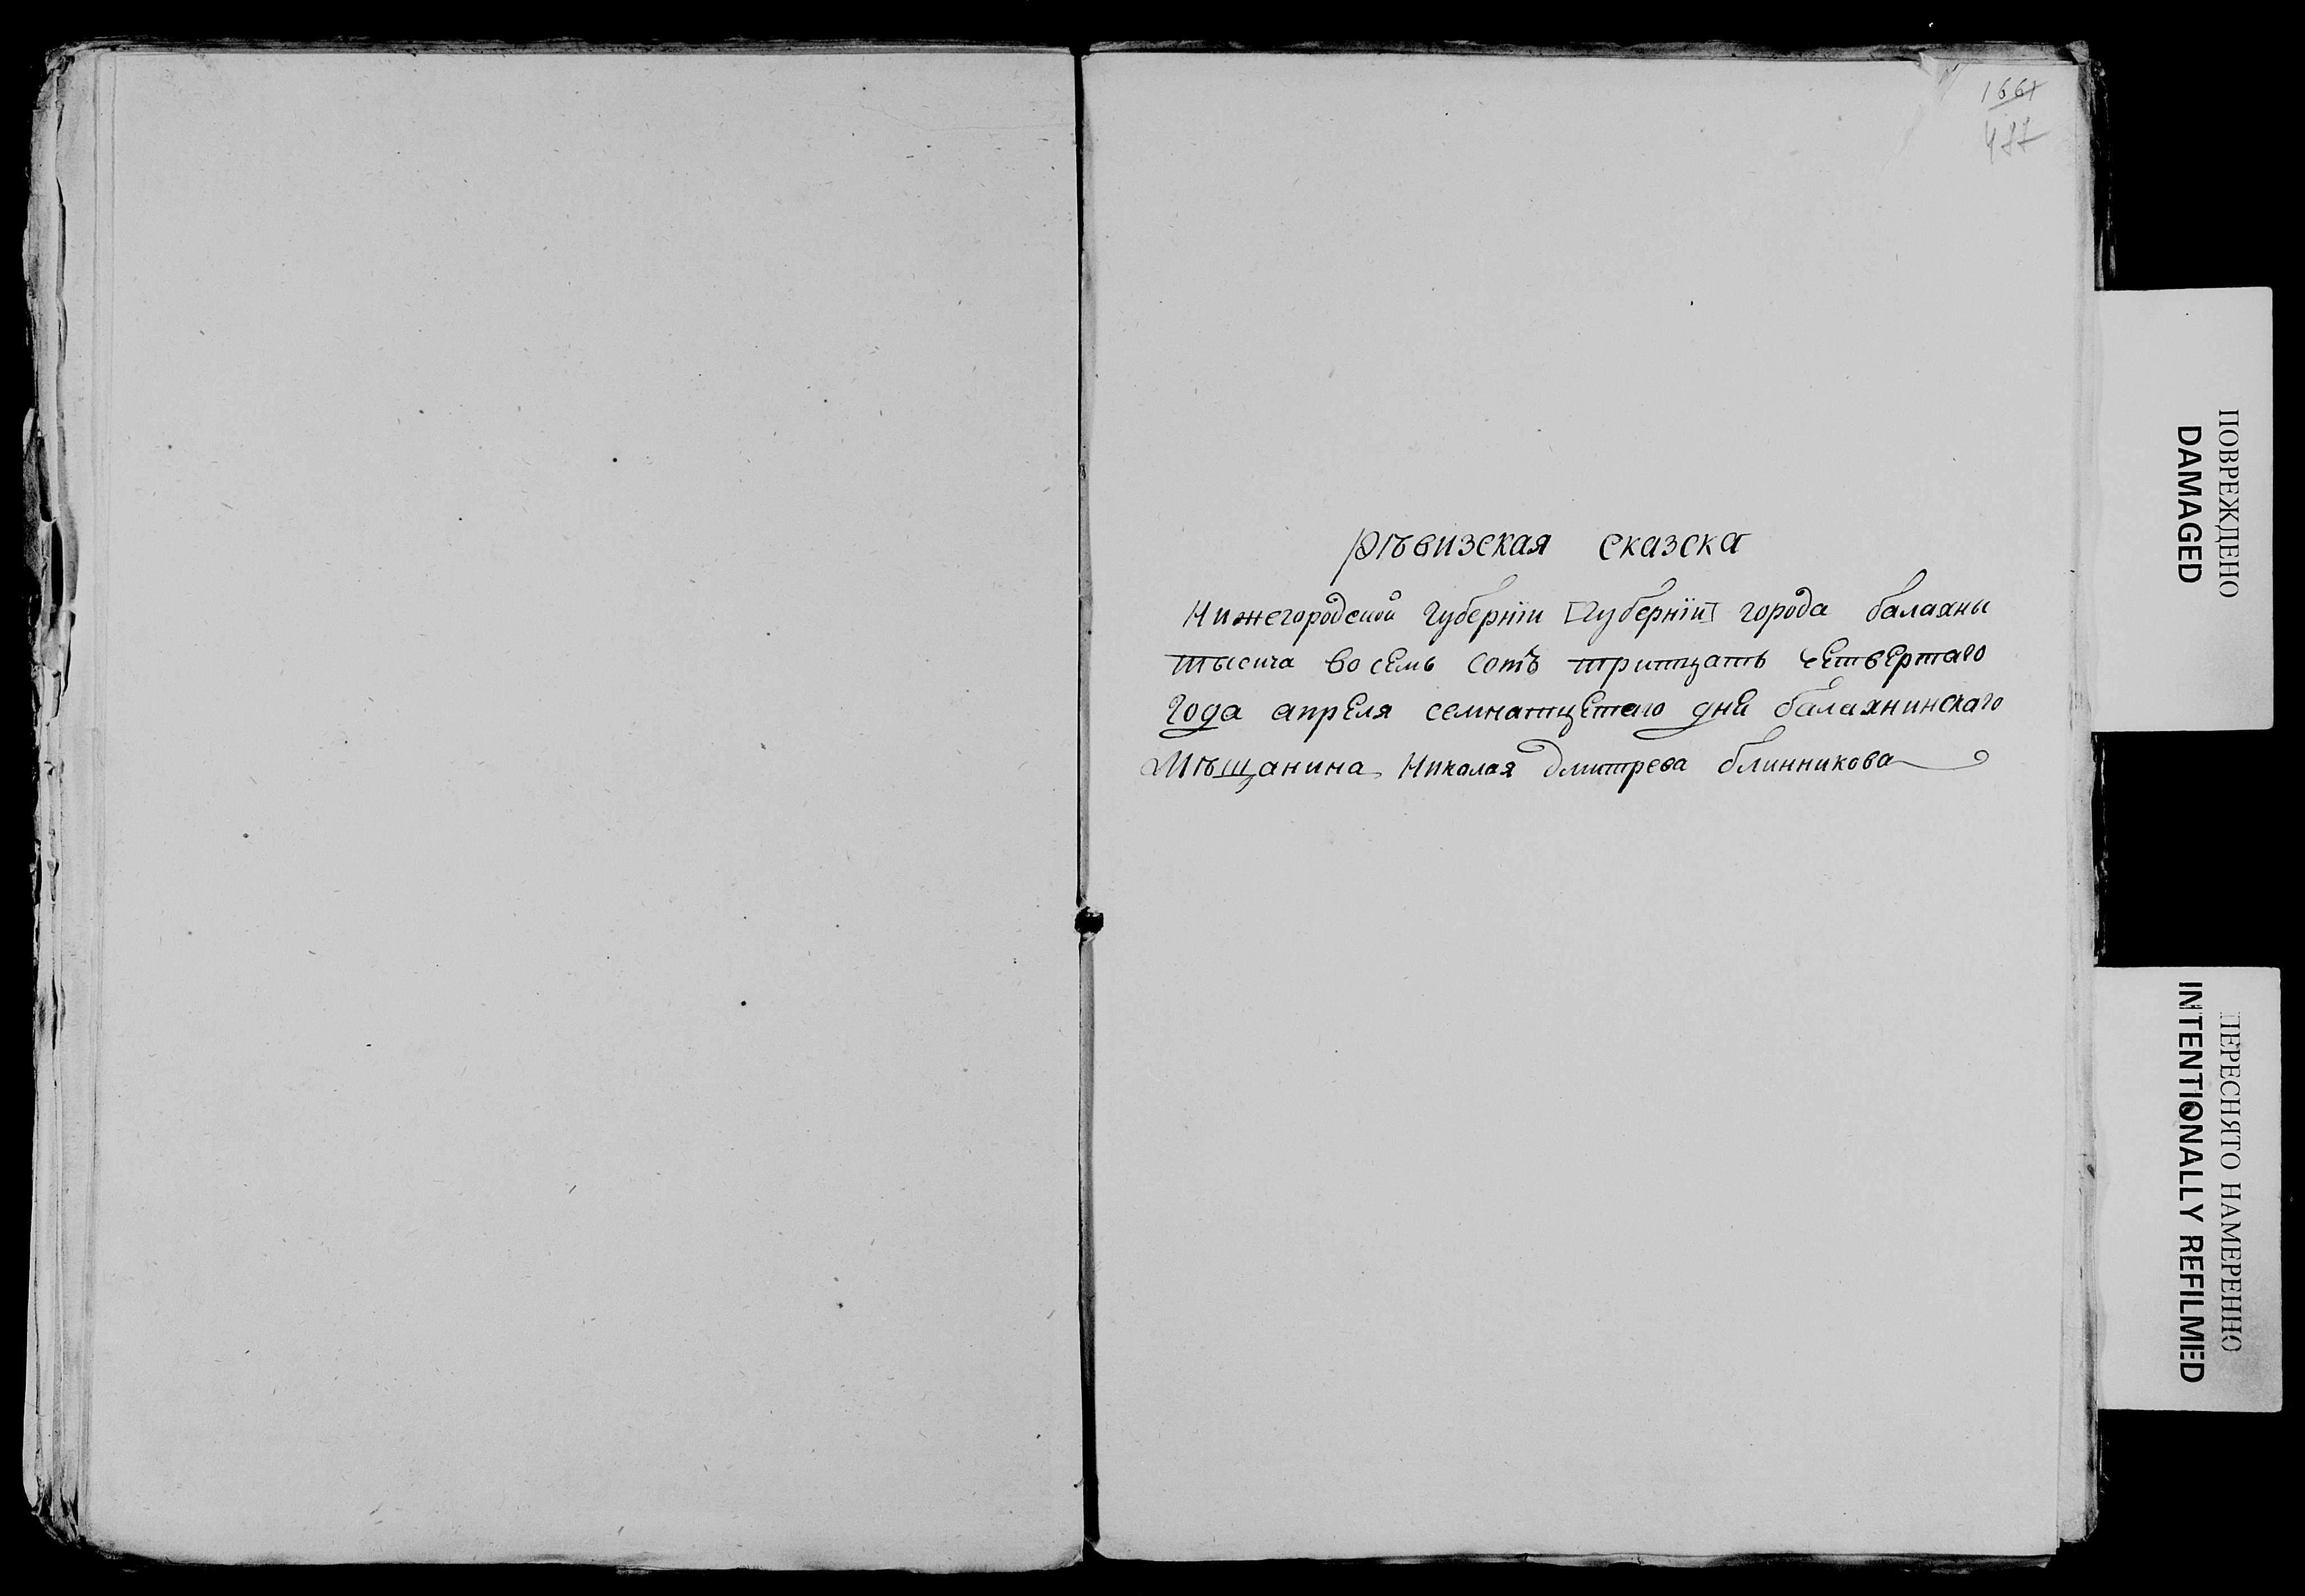 1661
477
рѣвизская сказска
Нижегородской губернїи [губернїи] города балахны
тысяча восемь сотъ тритцать четвертаго
года апреля семнатцетаго дня балахнинскаго
мѣщанина Николая дмитрева блинникова
ПОВРЕЖДЕНО
DAMAGED
ПЕРЕСНЯТО НАМЕРЕННО
INTENTIONALLY REFILMED